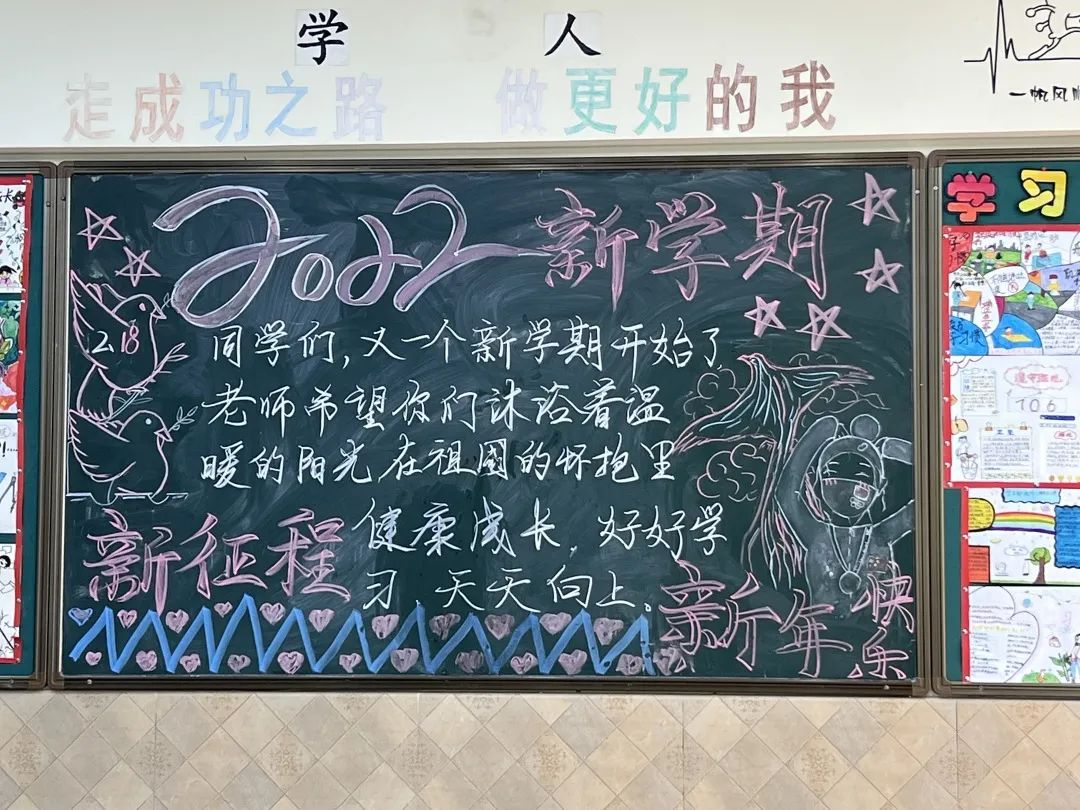 学 人
走成功之路 做更好的我
一帆风顺
2022 新学期
2.18
同学们，又一个新学期开始了
老师希望你们沐浴着温
暖的阳光在祖国的怀抱里
健康成长，好好学
习，天天向上。
新征程
新年快乐
学习
遵守班规
106